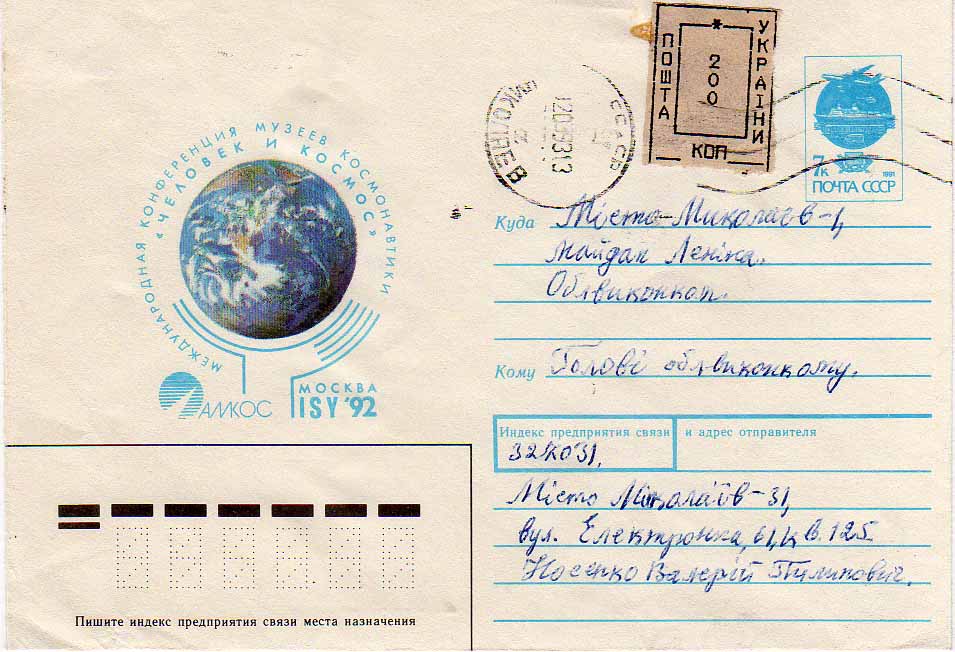 МЕЖДУНАРОДНАЯ КОНФЕРЕНЦИЯ МУЗЕЕВ КОСМОНАВТИКИ
«ЧЕЛОВЕК И КОСМОС»
АМКОС
МОСКВА
ISY '92
ПОШТА
УКРАЇНИ
*
200
КОП
7к
1991
ПОЧТА СССР
Куда Місто Миколаєв-1,
майдан Леніна.
Облвиконком.
Кому Голові облвиконкому.
Индекс предприятия связи и адрес отправителя
Місто Миколаїв-31,
вул. Електронна, 61, кв. 125
Носенко Валерій Пилипович.
Пишите индекс предприятия связи места назначения